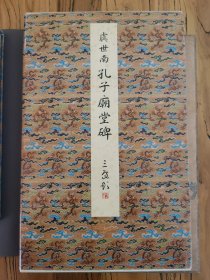 虞世南孔子廟堂碑